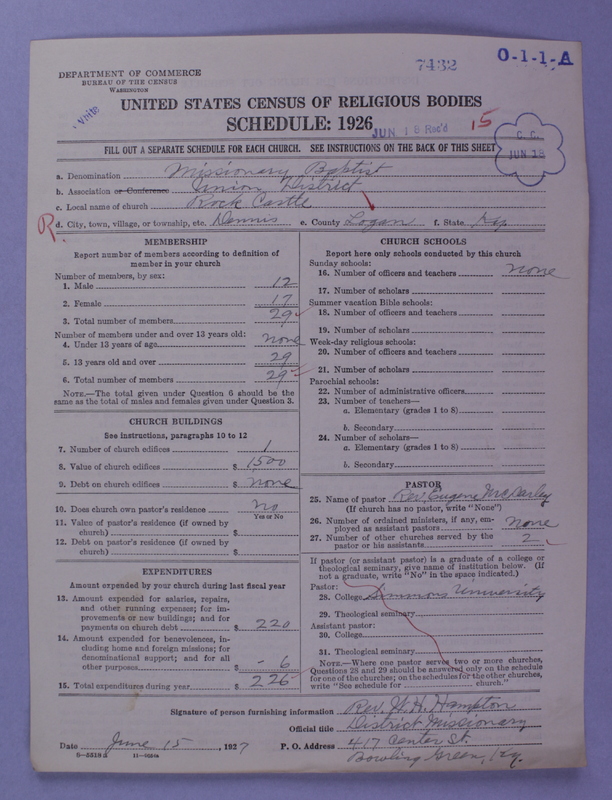 7432
O-1-1-A
DEPARTMENT OF COMMERCE
BUREAU OF THE CENSUS
WASHINGTON
White
UNITED STATES CENSUS OF RELIGIOUS BODIES
SCHEDULE: 1926
JUN 18 Rec'd
15
C. C.
JUN 18
FILL OUT A SEPARATE SCHEDULE FOR EACH CHURCH. SEE INSTRUCTIONS ON THE BACK OF THIS SHEET
a. Denomination Missionary Baptist
b. Association or Conference Union District
c. Local name of church Rock Castle
R. d. City, town, village, or township, etc. Dennis e. County Logan f. State Ky
MEMBERSHIP
Report number of members according to definition of
member in your church
Number of members, by sex:
1. Male 12
2. Female 17
3. Total number of members 29
Number of members under and over 13 years old:
4. Under 13 years of age none
5. 13 years old and over 29
6. Total number of members 29
NOTE.—The total given under Question 6 should be the
same as the total of males and females given under Question 3.
CHURCH BUILDINGS
See instructions, paragraphs 10 to 12
7. Number of church edifices 1
8. Value of church edifices $ 1500
9. Debt on church edifices $ none
10. Does church own pastor's residence no
Yes or No
11. Value of pastor's residence (if owned by
church) $
12. Debt on pastor's residence (if owned by
church) $
EXPENDITURES
Amount expended by your church during last fiscal year
13. Amount expended for salaries, repairs,
and other running expenses; for im-
provements or new buildings; and for
payments on church debt $ 220
14. Amount expended for benevolences, in-
cluding home and foreign missions; for
denominational support; and for all
other purposes $ - 6
15. Total expenditures during year $ 226
CHURCH SCHOOLS
Report here only schools conducted by this church
Sunday schools:
16. Number of officers and teachers none
17. Number of scholars
Summer vacation Bible schools:
18. Number of officers and teachers
19. Number of scholars
Week-day religious schools:
20. Number of officers and teachers
21. Number of scholars
Parochial schools:
22. Number of administrative officers
23. Number of teachers—
a. Elementary (grades 1 to 8)
b. Secondary
24. Number of scholars—
a. Elementary (grades 1 to 8)
b. Secondary
PASTOR
25. Name of pastor Rev. Eugene McCarley
(If church has no pastor, write "None")
26. Number of ordained ministers, if any, em-
ployed as assistant pastors none
27. Number of other churches served by the
pastor or his assistants 2
If pastor (or assistant pastor) is a graduate of a college or
theological seminary, give name of institution below. (If
not a graduate, write "No" in the space indicated.)
Pastor:
28. College Simmons University
29. Theological seminary
Assistant pastor:
30. College
31. Theological seminary
NOTE.—Where one pastor serves two or more churches,
Questions 28 and 29 should be answered only on the schedule
for one of the churches; on the schedules for the other churches,
write "See schedule for church."
Signature of person furnishing information Rev. W. H. Hampton
Official title District Missionary
Date June 15, 1927 P. O. Address 417 Center St.
Bowling Green, Ky.